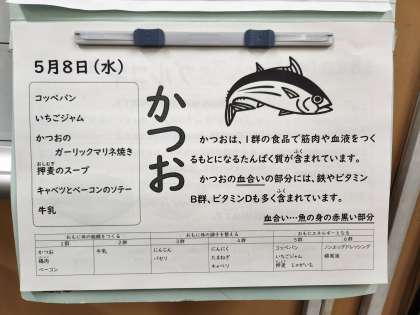 5月8日(水)
コッペパン
いちごジャム
かつおの
ガーリックマリネ焼き
おしむぎ
押麦のスープ
キャベツとベーコンのソテー
牛乳
かつお
かつおは、1群の食品で筋肉や血液をつく
るもとになるたんぱく質が含まれています。
ふく
かつおの血合いの部分には、鉄やビタミン
B群、ビタミンDも多く含まれています。
ふく
血合い…魚の身の赤黒い部分
おもに体の組織をつくる おもに体の調子を整える おもにエネルギーとなる
1群 2群 3群 4群 5群 6群
かつお 牛乳 にんじん にんにく コッペパン ノンエッグドレッシング
鶏肉 パセリ たまねぎ いちごジャム
ベーコン キャベツ 押麦 じゃがいも